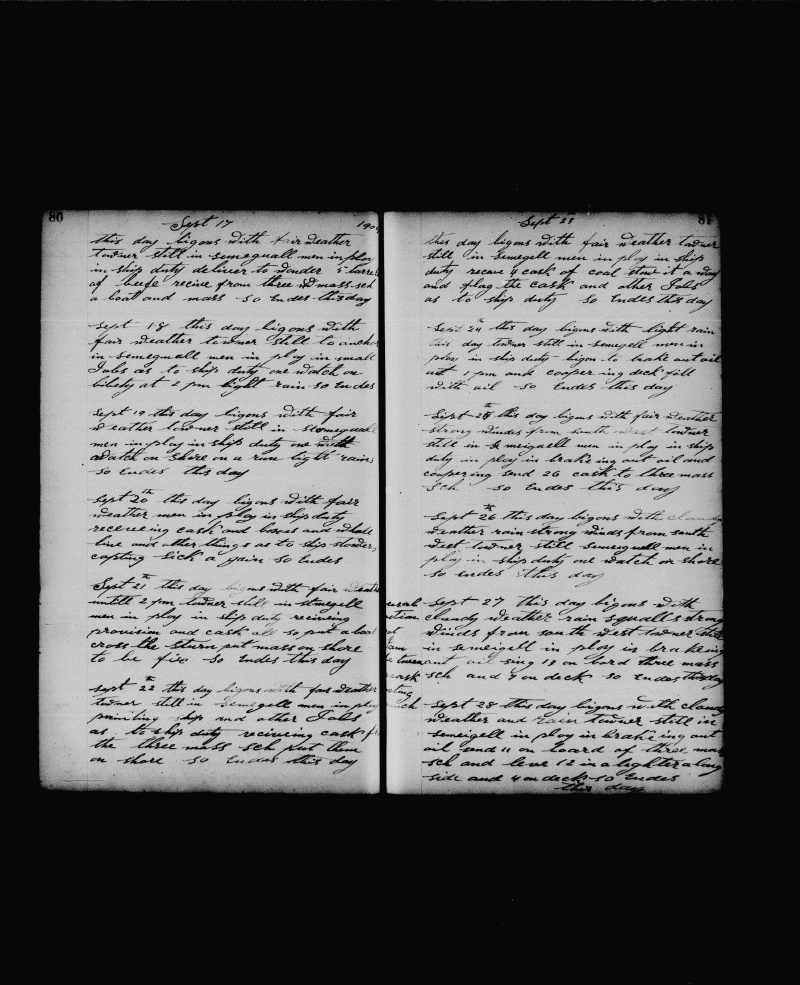 80
Sept 17
this day bigons with fair weather
towner still in semeguall men in ploy
in ship duty deliver to wonder 5 barrel
of beefe recive from three mass sch
a boat and mass so Endes this day
Sept 18 this day bigons with
fair weather towner still to anchor
in semeguall men in ploy in small
Jobs as to ship duty one watch on
liberty at 2 pm light rain so Endes
Sept 19 this day bigons with fair
weather towner still in semeguall
men in ploy in ship duty one with
watch on shore on a run light rain
so Endes this day
Sept 20th this day bigons with fair
weather men in ploy in ship duty
receiveing cask and boxes and whale
line and other things as to ship
capting sick a gain so Endes
Sept 21th this day bigons with fair weather
untill 2 pm towner still in semegell
men in ploy in ship duty reciving
provision and cask so put a boat
cross the sturn put mass on shore
to be fix so Endes this day
Sept 22th this day bigons with fair weather
towner still in semegell men in ploy
painting ship and other Jobs
as to ship duty reciveing cask
the three mass sch put them
on shore so Endes this day
81
Sept 23
this day bigons with fair weather towner
still in semegell men in ploy in ship
duty receve 4 cask of coal stow it a way
and flag the cask and other Jobs
as to ship duty so Endes this day
Sept 24th this day bigons with light rain
this day towner still in semegell men in
ploy in ship duty bigon to brake out oil
at 1 pm and coopering deck full
with oil so Endes this day
Sept 25th this day bigons with fair weather
strong windes from south west towner
still in semeigaell men in ploy in ship
duty in ploy in brakeing out oil and
coopering send 26 cask to three mass
sch so Endes this day
Sept 26th this day bigons with cloudy
weather rain strong windes from south
west towner still semeguell men in
ploy in ship duty one watch on shore
so endes this day
Sept 27 this day bigons with
cloudy weather rain squalls strong
windes from south west towner still
in semeigell in ploy in brakeing
out oil sing 19 on bord three mass
sch and 9 on deck so Endes this day
Sept 28 this day bigons with cloudy
weather and rain towner still in
semeigell in ploy in brakeing out
oil send 11 on board of three mass
sch and leve 12 in a lighter along
side and 4 on deck so Endes
this day